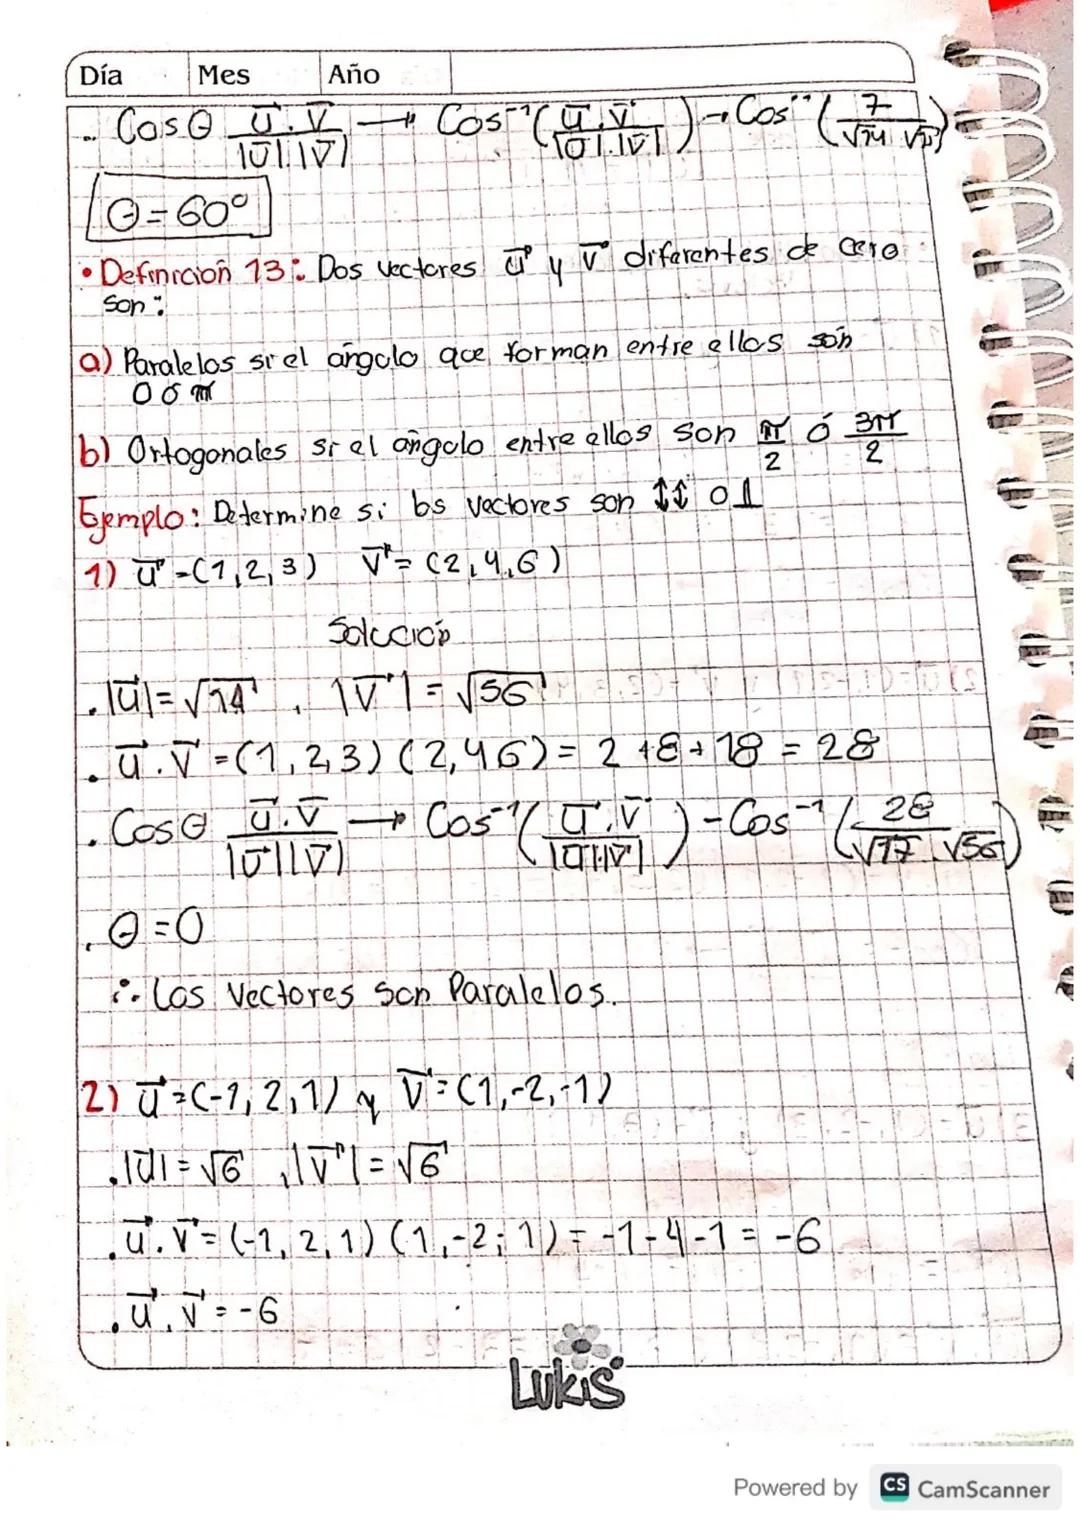 Día Mes Año
Cosθ u⃗.v⃗/|u⃗|.|v⃗| → Cos⁻¹(u⃗.v⃗/|u⃗|.|v⃗|) → Cos⁻¹(7/√14.
θ=60°
• Definición 13: Dos vectores u⃗ y v⃗ diferentes de cero
son:
a) Paralelos si el ángulo que forman entre ellos són
0 ó π
b) Ortogonales si el ángulo entre ellos son π/2 ó 3π/2
Ejemplo: Determine si los vectores son ↕↕ o ⊥
1) u⃗=(1,2,3) v⃗=(2,4,6)
Solución
.|u⃗|=√14, |v⃗|=√56
. u⃗.v⃗=(1,2,3)(2,46)= 2+8+18=28
. Cosθ u⃗.v⃗/|u⃗||v⃗| → Cos⁻¹(u⃗.v⃗/|u⃗|.|v⃗|)-Cos⁻¹(28/√17.√56)
. θ=0
∴ Los Vectores son Paralelos.
2) u⃗=(-1,2,1) y v⃗=(1,-2,-1)
.|u⃗|=√6, |v⃗|=√6
. u⃗.v⃗=(-1,2,1)(1,-2;1)=-1-4-1=-6
. u⃗.v⃗=-6
LUKIS
Powered by CS CamScanner